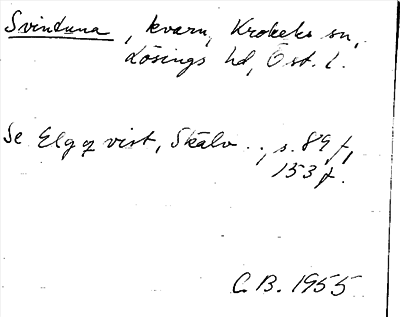 Svintuna, kvarn, Krokeks sn,
Lösings hd, Öst. l.
Se Elgqvist, Skälv.., s. 89 f,
153 f.
C.B. 1955